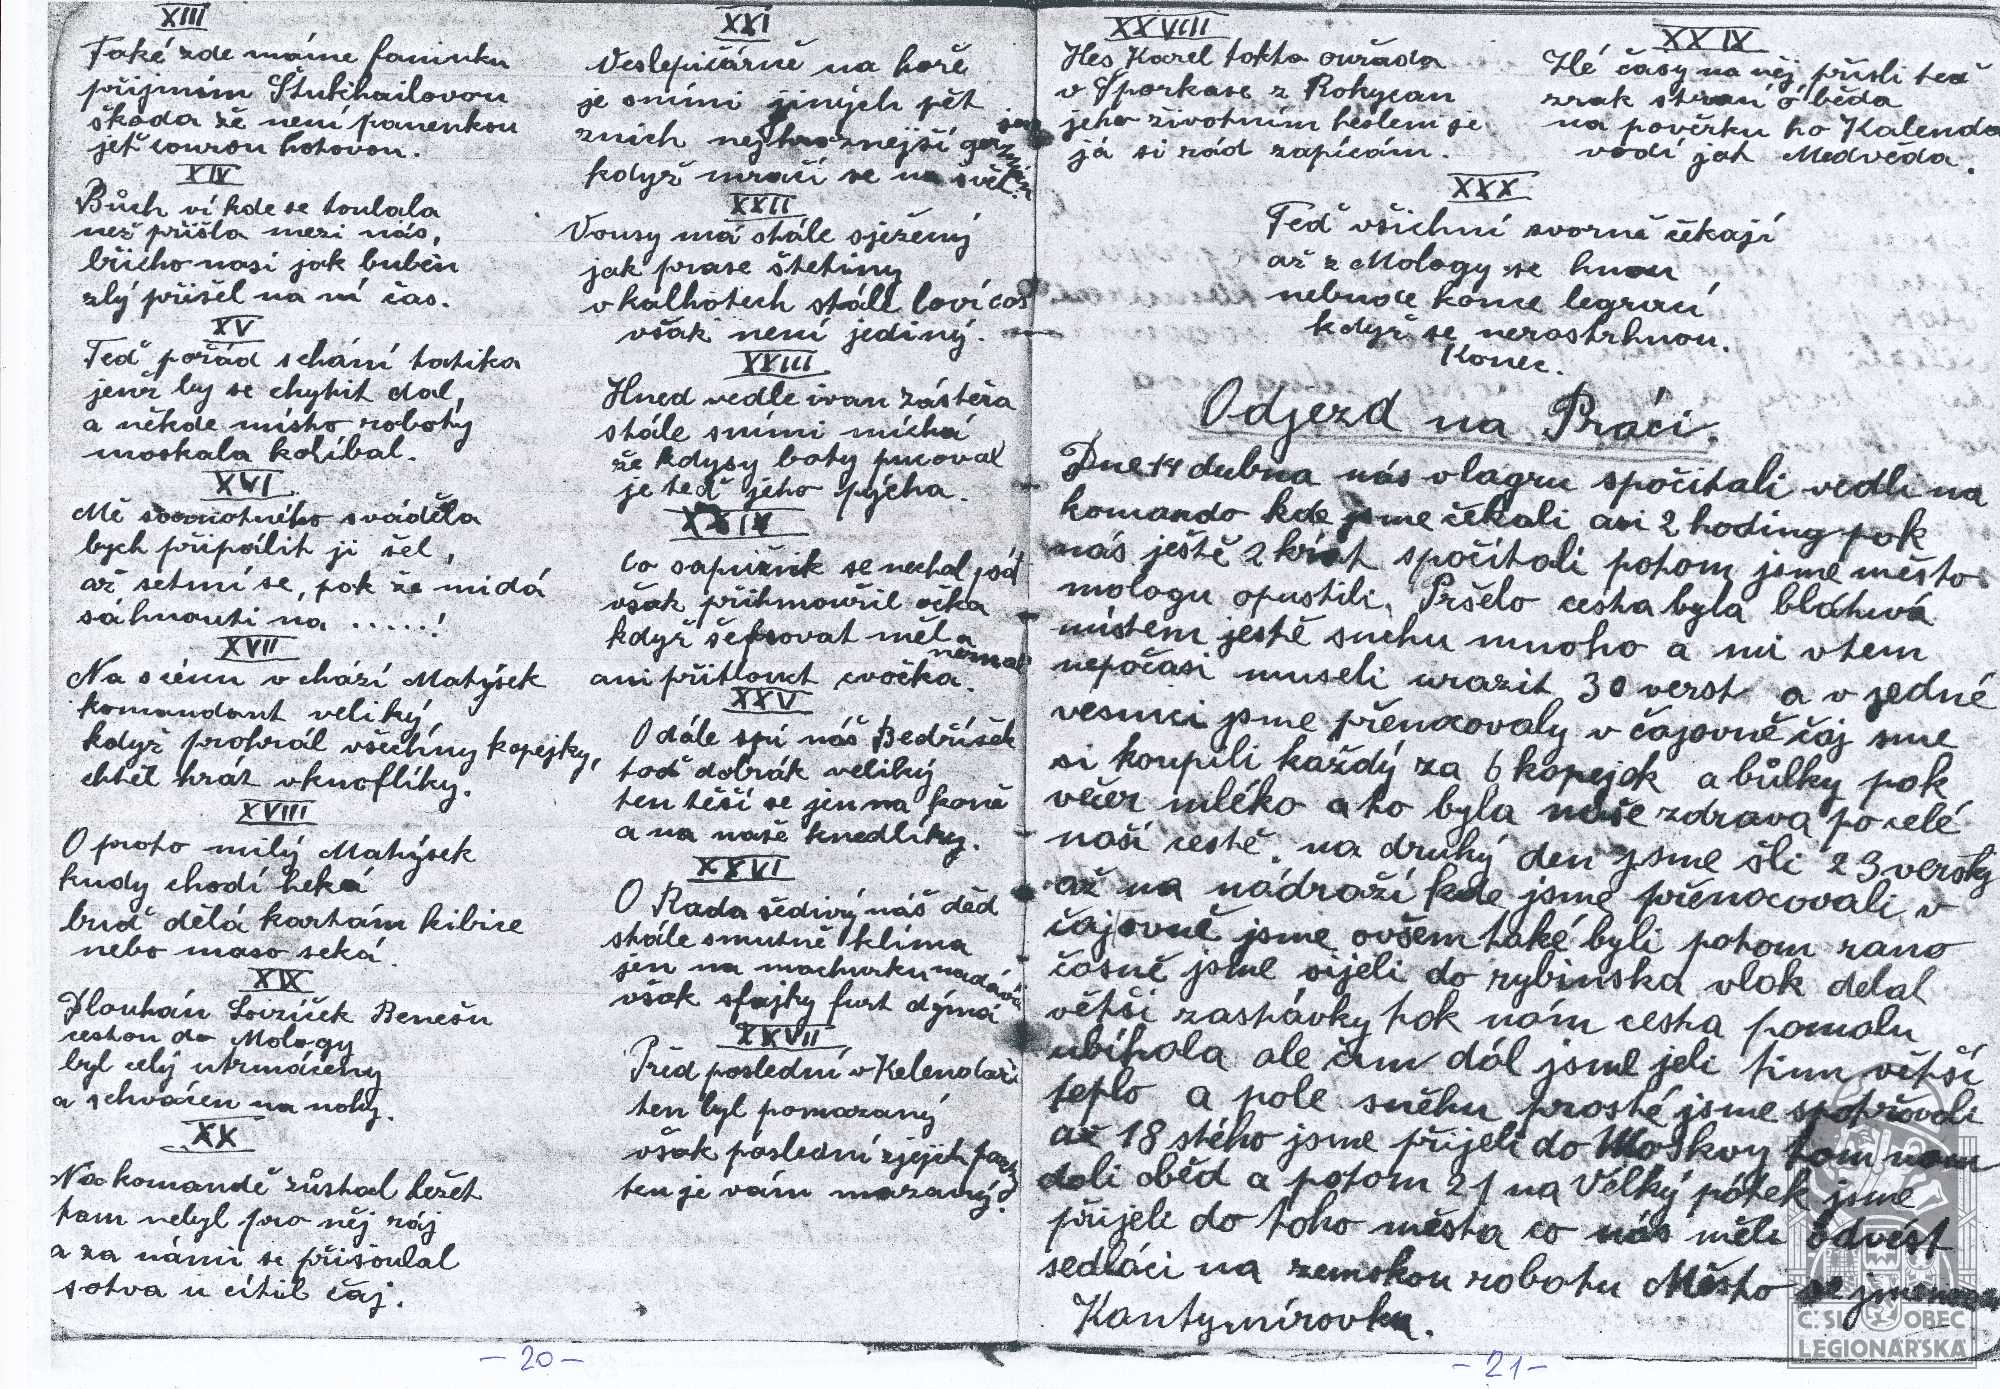 XIII
Také zde máme faninku
přijmím Štukhailovou
škoda že není panenkou
jeť courou hotovou.
XIV
Bůch ví kde se toulala
než přišla mezi nás,
břicho nosí jak buben
zlý přišel na ní čas.
XV
Teď pořád schání tatíka
jenž by se chytit dal,
a někde místo roboty
moskala kolíbal.
XVI
Mě samotného sváděla
bych připálit ji šel,
až setmí se, pak že mi dá
sáhnouti na .....!
XVII
Na scénu vchází Matýsek
komandant veliký,
když prohrál všechny kopejky,
chtěl hrát vknoflíky.
XVIII
O proto milý Matýsek
kudy chodí heká
buď dělá kartám kibice
nebo maso seká.
XIX
Dlouhán Benešu
cestou do Mology
byl celý utrmáceny
a schvácen na nohy.
XX
Na komandě zůstal ležet
tam nebyl pro něj ráj
a za námi se přišoulal
sotva u cítil čaj.
XXI
Veslepičárně na hoře
je snimi jiných pět
znich nejhroznejší german
když mračí se na svět.
XXII
Vousy má stále sježený
jak prase štetiny
vkalhotech stále loví cos
však není jediný.
XXIII
Hned vedle ivan zástěra
stále snimi míchá
že kdysy boty pucoval
je teď jeho pýcha.
XXIV
Co sapúžnik se nechal psát
však přitmouřil očka
když šefsovat měl a neměl
ani přitlouct cvočka.
XXV
Odále spí náš Bedříšek
toď dobrák veliký
ten těší se jen na koně
a na naše knedlíky.
XXVI
O Rada šedivý náš děd
stále smutně klíma
jen na machorku nadává
však sfajky furt dýmá
XXVII
Před poslední v Kelendáři
ten byl pomazaný
však poslední zjejich party
ten je vám mazaný?
XXVIII
Hes Karel tokta ouřada
v Šporkase z Rokycan
jeho životním heslem je
já si rád zapícám.
XXIX
Hé časy na něj přišli teď
zrak straní ó běda
na pověrku ho Kalenda
vodí jak Medvěda.
XXX
Teď všichní svorně čékají
až z Mology se hnou
nebude konce legrací
když se nerostrhnou.
Konec.
Odjezd na Práci.
Dne 14 dubna nás vlagru spočitali vedli na
komando kde jsme čékali asi 2 hoding pak
nás ještě 2 krát spočítali potom jsme město
mologu opustili. Pršelo cesta byla blátivá
místem ještě snehu mnoho a mi vtem
nepočasi museli urazit 30 verst a v jedné
vesnici jsme přenocovaly v čajovně čaj sme
si koupili každý za 6 kopejek a bůlky pak
večer mléko a to byla naše zdrava po celé
naší cestě. na druhý den jsme šli 23 versty
až na nádraží kde jsme přenocovali v
čajovně jsme ovšem také byli potom rano
časně jsme sijeli do rybinska vlak delal
větši zastávky tak nám cesta pomalu
ubíhala ale čim dál jsme jeli tim větší
teplo a pole sněhu prosté jsme spatřovali
až 18 stého jsme přijeli do Moskvy tam nam
dali oběd a potom 21 na Velký pátek jsme
přijeli do toho města co nás měli odvést
sedláci na zemskou robotu Město se jmenova
Kantymírovka.
- 20 -
- 21 -
OBEC
LEGIONÁŘSKÁ